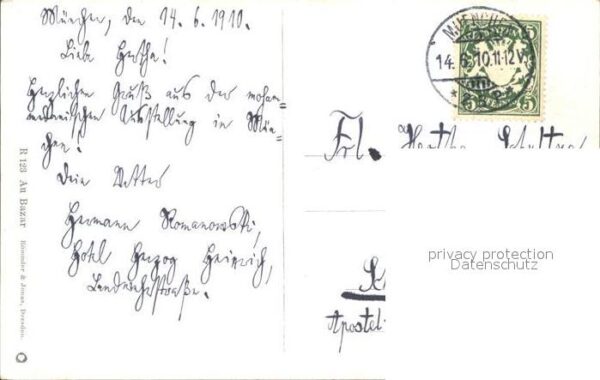 München, den 14. 6. 1910.
Liebe Hertha!
Herzlichen Gruß aus der moham=
medanischen Ausstellung in Mün=
chen!
Dein Vetter
Hermann Romanowski,
Hotel Herzog Heinrich,
Landwehrstraße.
R 123 Au Bazar
Römmler & Jonas, Dresden.
MUENCHEN
14. 6. 10. 11-12 V.
5 5
Frl. Hertha
privacy protection
Datenschutz
Apostel